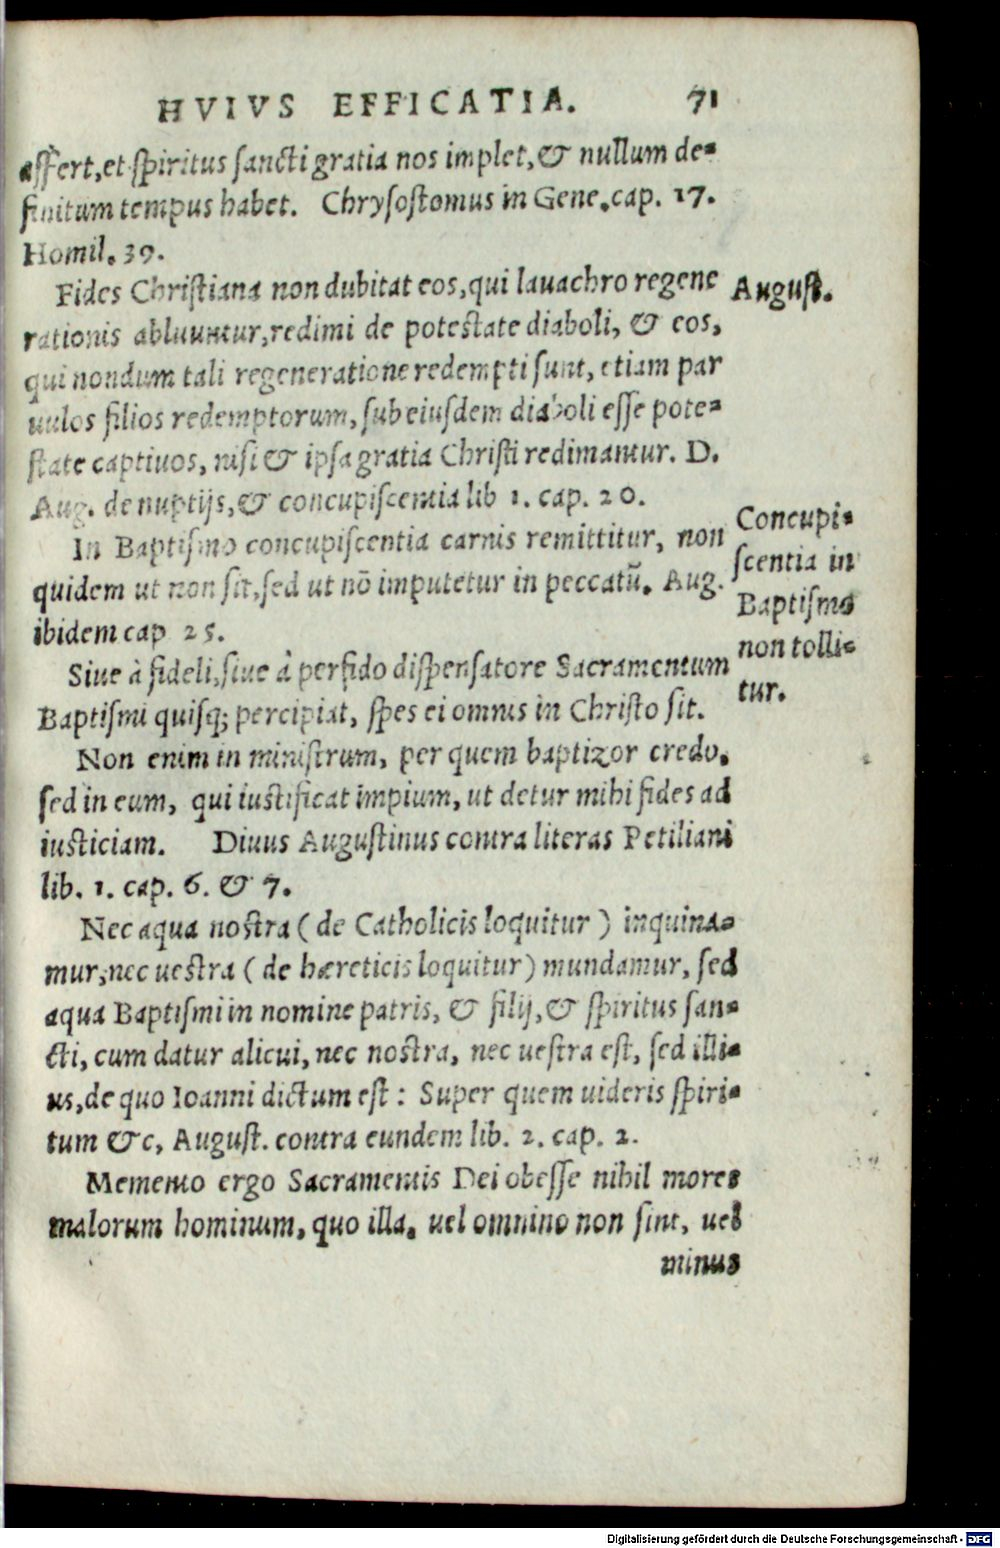 HVIVS EFFICATIA. 71
affert, et spiritus sancti gratia nos implet, & nullum de-
finitum tempus habet. Chrysostomus in Gene. cap. 17.
Homil. 39.
Fides Christiana non dubitat eos, qui lauachro regene
rationis abluuntur, redimi de potestate diaboli, & eos,
qui nondum tali regeneratione redempti sunt, etiam par
uulos filios redemptorum, sub eiusdem diaboli esse pote-
state captiuos, nisi & ipsa gratia Christi redimantur. D.
Aug. de nuptijs, & concupiscentia lib 1. cap. 20.
August.
In Baptismo concupiscentia carnis remittitur, non
quidem ut non sit, sed ut nō imputetur in peccatū. Aug.
ibidem cap 25.
Concupi-
scentia in
Baptismo
non tolli-
tur.
Siue à fideli, siue à perfido dispensatore Sacramentum
Baptismi quisq; percipiat, spes ei omnis in Christo sit.
Non enim in ministrum, per quem baptizor credo,
sed in eum, qui iustificat impium, ut detur mihi fides ad
iusticiam. Diuus Augustinus contra literas Petiliani
lib. 1. cap. 6. & 7.
Nec aqua nostra ( de Catholicis loquitur ) inquina-
mur, nec uestra ( de hæreticis loquitur ) mundamur, sed
aqua Baptismi in nomine patris, & filij, & spiritus san-
cti, cum datur alicui, nec nostra, nec uestra est, sed illi-
us, de quo Ioanni dictum est : Super quem uideris spiri-
tum &c, August. contra eundem lib. 2. cap. 2.
Memento ergo Sacramentis Dei obesse nihil mores
malorum hominum, quo illa. uel omnino non sint, uel
minus
Digitalisierung gefördert durch die Deutsche Forschungsgemeinschaft - DFG